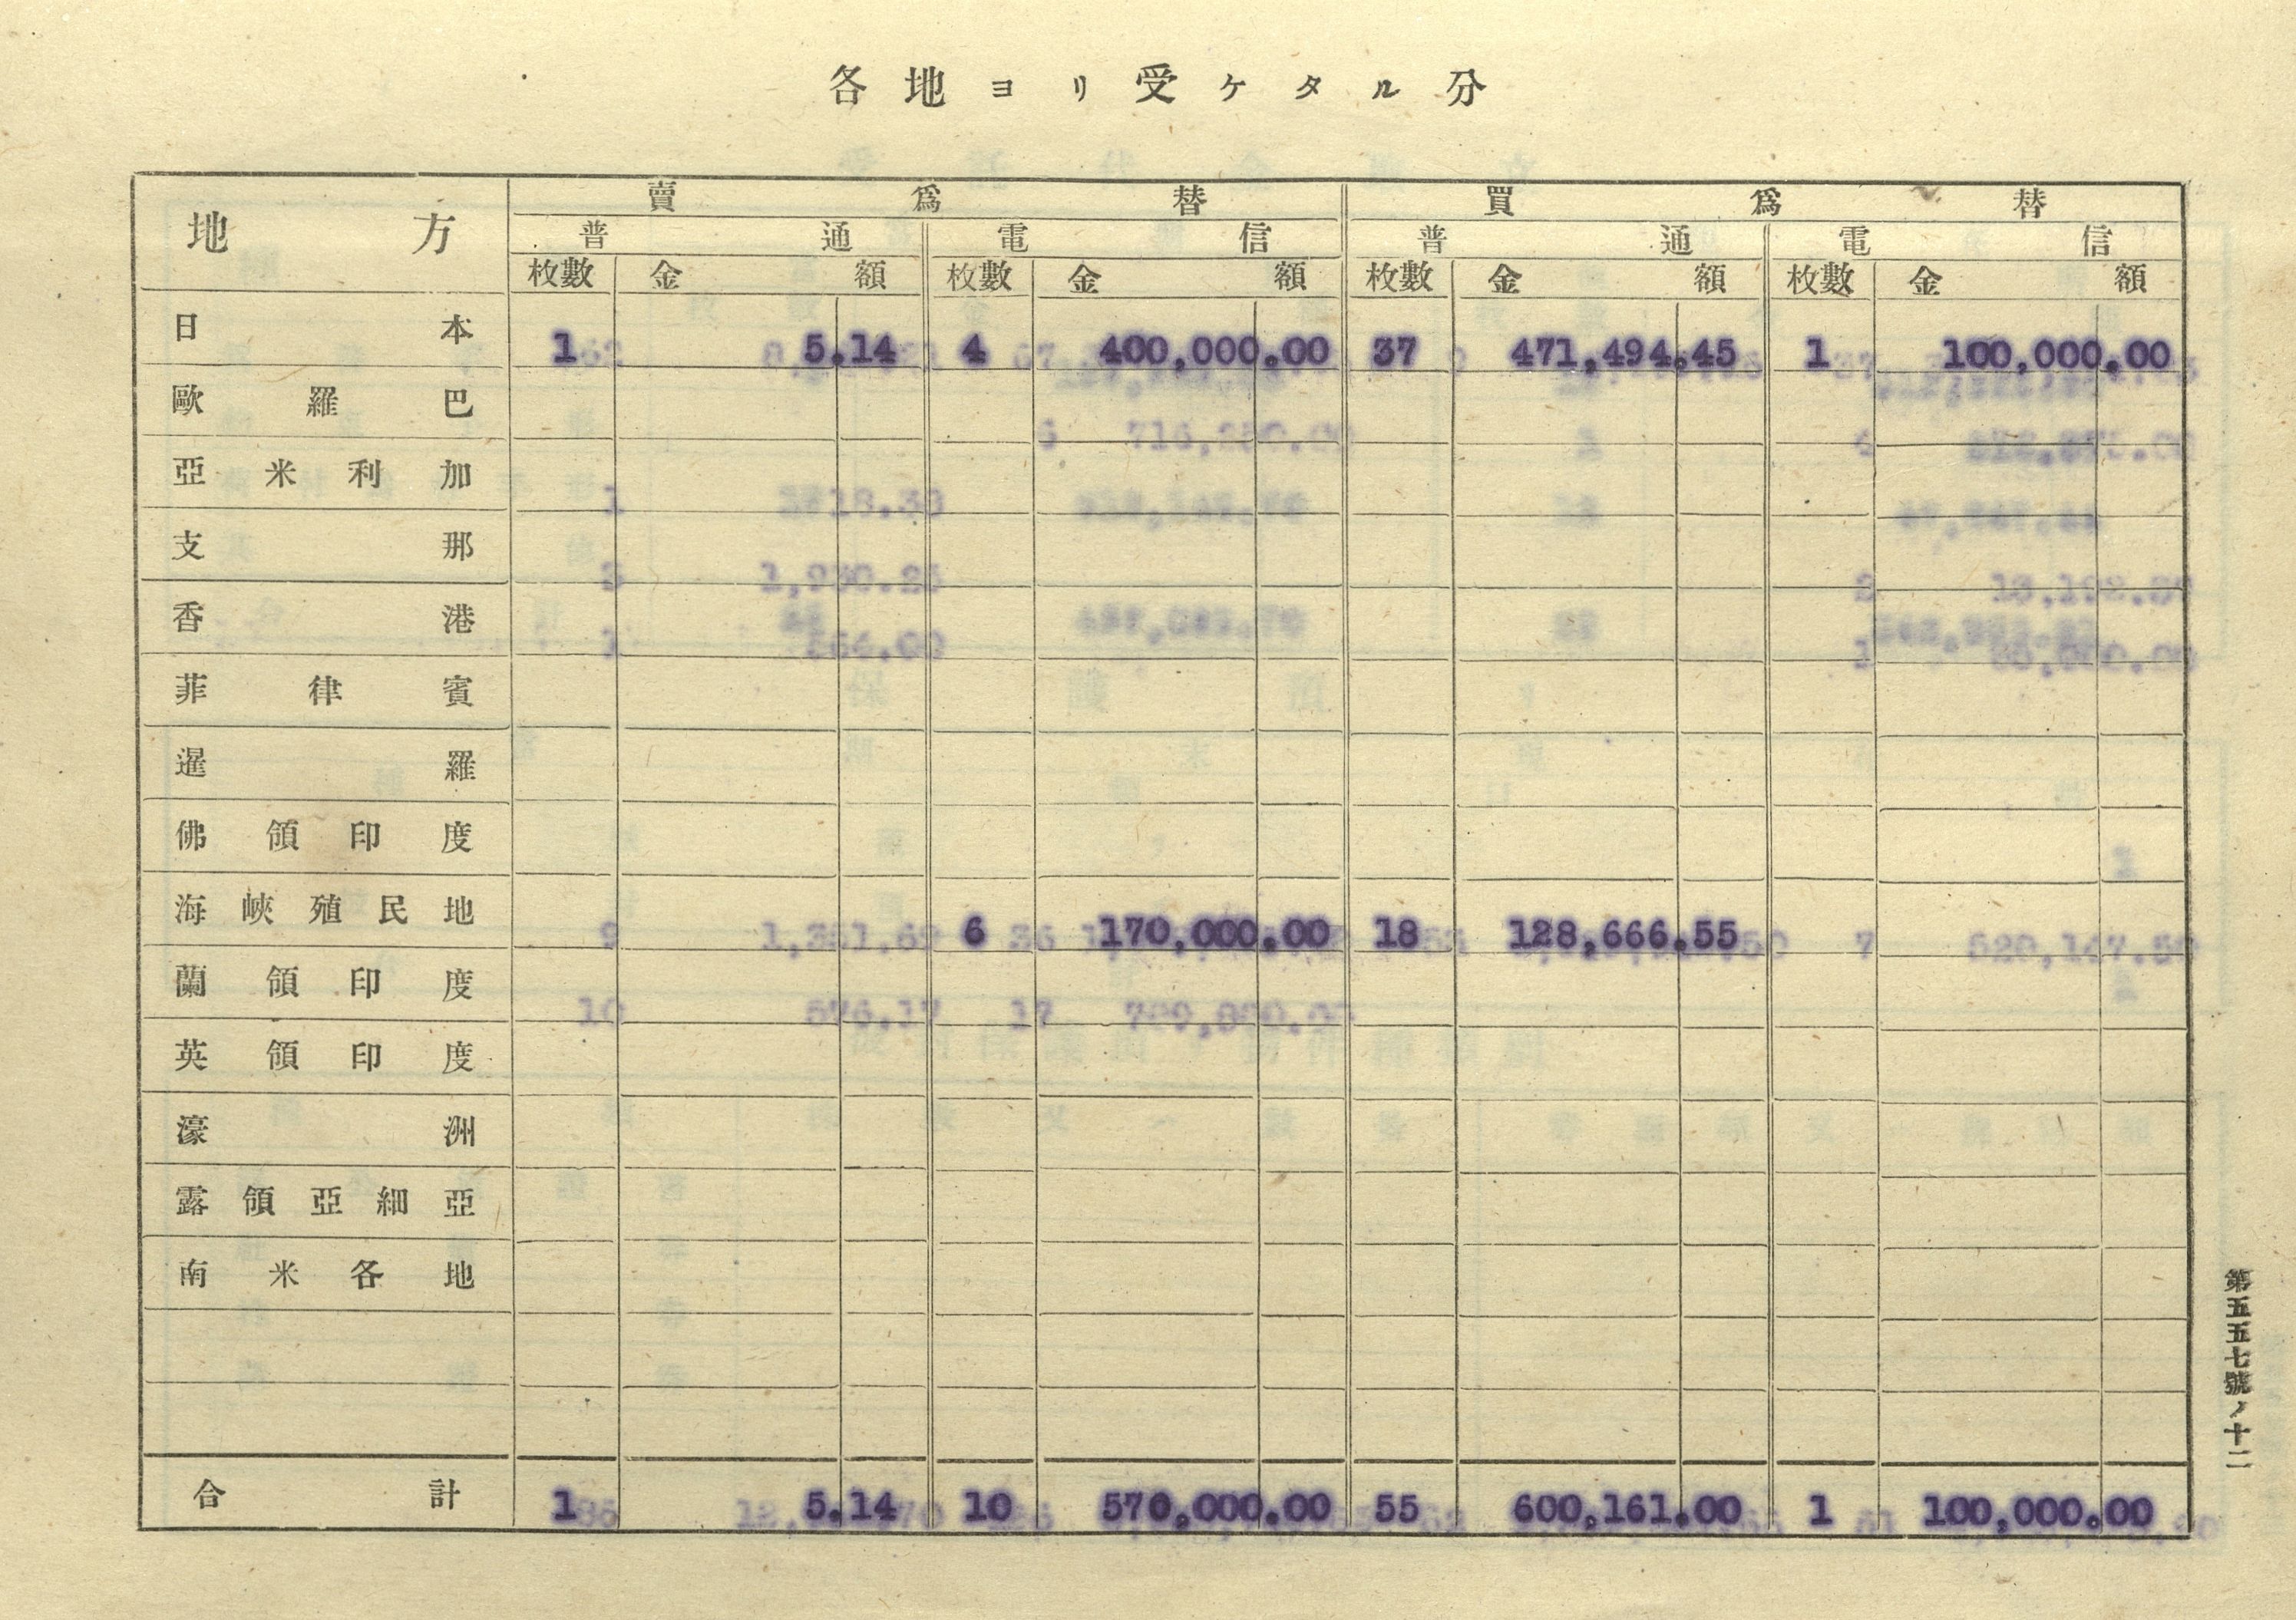 各地ヨリ受ケタル分
地方 賣爲替 買爲替
普通 電信 普通 電信
枚數 金額 枚數 金額 枚數 金額 枚數 金額
日本 1 5.14 4 400,000.00 37 471,494.45 1 100,000.00
歐羅巴
亞米利加
支那
香港
菲律賓
暹羅
佛領印度
海峽殖民地 6 170,000.00 18 128,666.55
蘭領印度
英領印度
濠洲
露領亞細亞
南米各地
合計 1 5.14 10 570,000.00 55 600,161.00 1 100,000.00
第五五七號ノ十二